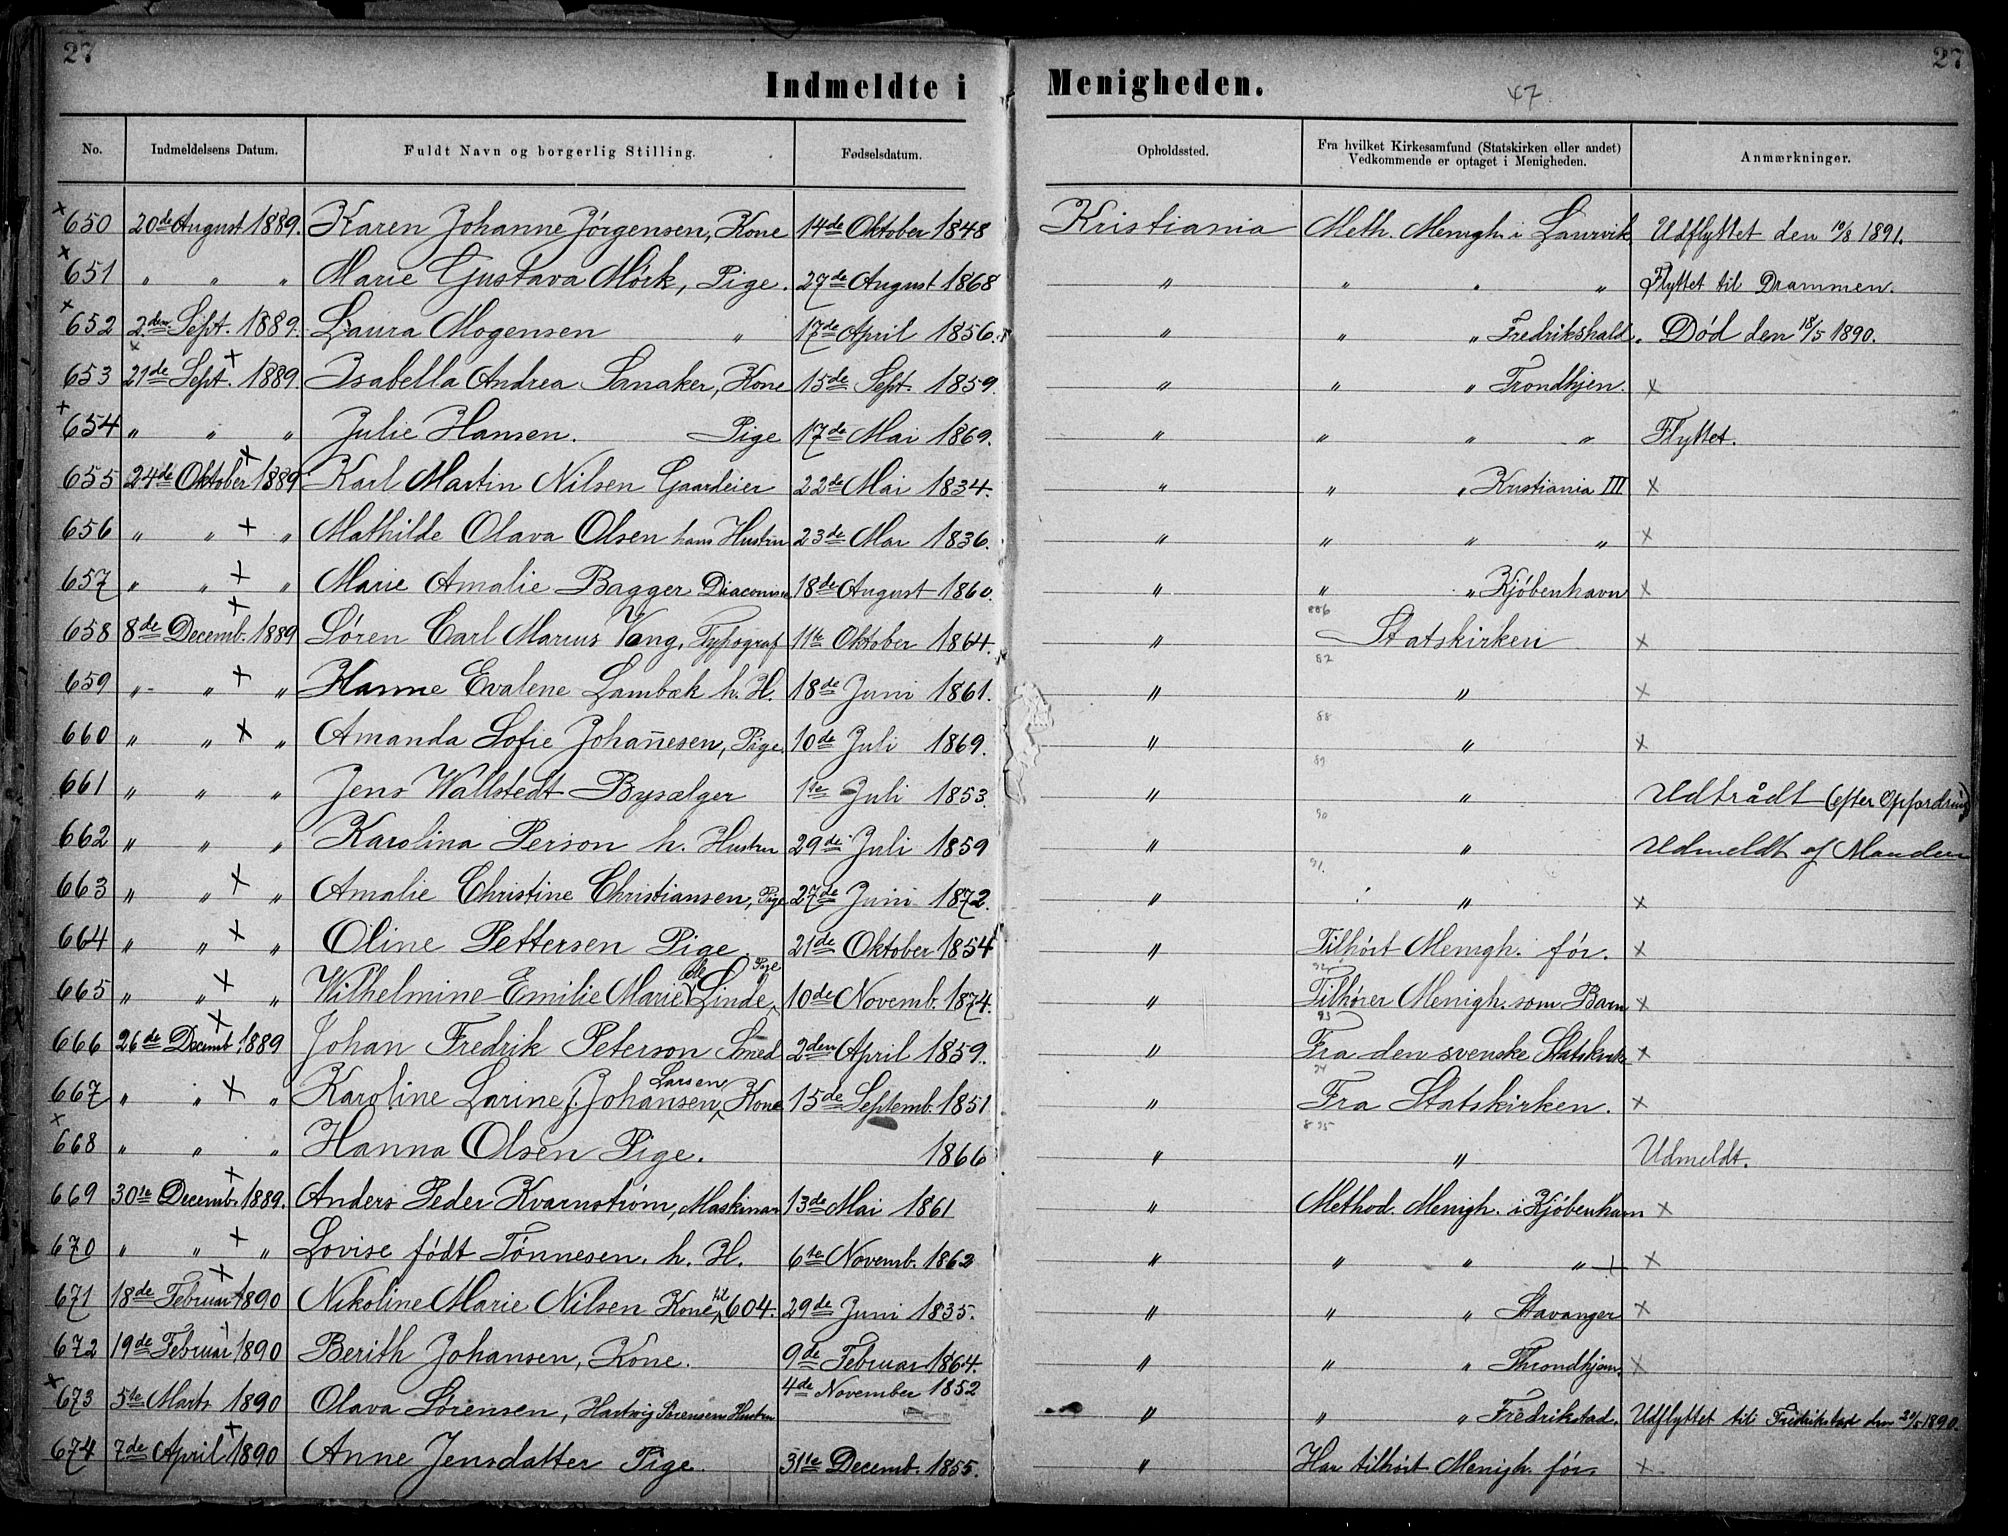 27 27
Indmeldte i Menigheden. 47.
No. Indmeldelsens Datum. Fuldt Navn og borgerlig Stilling. Fødselsdatum. Opholdssted. Fra hvilket Kirkesamfund (Statskirken eller andet) Vedkommende er optaget i Menigheden. Anmærkninger.
× 650 20de August 1889. Karen Johanne Jörgensen, Kone 14de Oktober 1848 Kristiania Meth. Menigh. i Laurvik. Udflyttet den 19/8 1891.
× 651 " " " Marie Gustava Mörk, Pige. 27de August 1868 " " " " Flyttet til Drammen.
× 652 2den Sept. 1889. Laura Mogensen " 17de April 1856. " " " Fredrikshald. Död den 18/5 1890.
653 21de Sept. × 1889. Isabella Andrea Sanaker, Kone 15de Sept. 1859. " " " Trondhjen. ×
× 654 " " " Julie Hansen. Pige 17de Mai 1869. " " " " Flyttet.
655 24de Oktober × 1889 Karl Martin Nilsen Gaardeier 22de Mai 1834. " " " Kristiania III ×
656 " " × " Mathilde Olava Olsen hans Hustru 23de Mai 1836. " " " " ×
657 " " × " Marie Amalie Bagger Diaconisse 18de August 1860. " " " Kjöbenhavn ×
658 8de Decemb. × 1889 Sören Carl Marius Vang, Typograf 11te Oktober 1864. " 886 Statskirken ×
659 " " × " Hanne Evalene Lambæk h. H. 18de Juni 1861. " 82 " ×
660 " " × " Amanda Sofie Johan̄esen, Pige 10de Juli 1869. " 88 " ×
661 " " " Jens Wallstedt Bysælger 1te Juli 1853. " 89 " Udtrådt (efter Opfordring)
662 " " " Karolina Person h. Hustru 29de Juli 1859 " 90 " Udmeldt af Manden
663 " " × " Amalie Christine Christiansen, Pige 27de Juni 1872. " 91. " ×
664 " " × " Oline Pettersen Pige 21de Oktober 1854 " Tilhört Menigh. för. ×
665 " " × " Wilhelmine Emilie Marie de Linde, Pige 10de Novemb. 1874. " 92 Tilhörer Menigh. som Barn ×
666 26de Decemb. × 1889 Johan Fredrik Peterson Smed 2den April 1859. " 93 Fra den svenske Statskirke ×
667 " " × " Karoline Larine f. Johansen, Larsen Kone 15de Septemb. 1851 " 94 Fra Statskirken. ×
× 668 " " " Hanna Olsen Pige. 1866 " 895 " Udmeldt.
669 30te Decemb. × 1889. Anders Peder Kvarnström, Maskinar 13de Mai 1861 " Method. Menigh. i Kjöbenhavn ×
670 " " × " Lovise födt Tönnesen. h. H. 6te Novemb. 1862 " " " " ×
671 18de Februar × 1890 Nikoline Marie Nilsen Kone til 604. 29de Juni 1835. " " " Stavanger ×
672 19de Februar 1890 Berith Johansen, Kone. 9de Februar 1864. " " " Throndhjem. ×
× 673 5te Marts 1890 Olava Sörensen, Hartvig Sörensens Hustru 4de November 1852 " " " Fredrikstad. Udflyttet til Fredrikstad den 20/5 1890.
674 7de April × 1890 Anne Jensdatter Pige 31te Decemb. 1855. " Har tilhört Menigh. för. ×